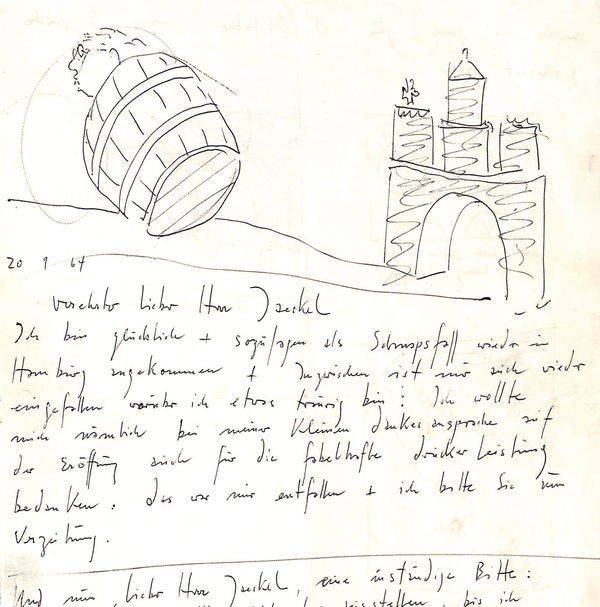 20 9 64
verehrter lieber Herr Jaeckel
Ich bin glücklich + sozusagen als Schnapsfaß wieder in
Hamburg angekommen + Inzwischen ist mir auch wieder
eingefallen worüber ich etwas traurig bin: Ich wollte
mich nämlich bei meiner kleinen dankesansprache auf
der Eröffnung auch für die fabelhafte drucker leistung
bedanken: das war mir entfallen + ich bitte Sie um
Verzeihung.
Und nun, lieber Herr Jaeckel, eine inständige Bitte:
bis ich